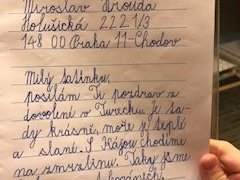 Miroslav Hrouda
Holušická 2221/3
148 00 Praha 11-Chodov
Milý tatínku,
posílám Ti pozdrav z
dovolené v Turecku, je ta-
dy krásně, moře je teplé
a slané. S Kájou chodíme
na zmrzlinu. Taky jsme